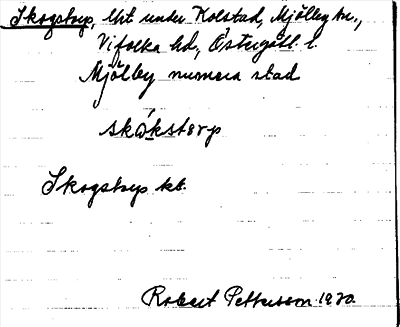 Skogstorp, lht under Kolstad, Mjölby sn.,
Vifolka hd, Östergötl. l.
Mjölby numera stad
skɷ́ksterp
Skogstorp kt.
Robert Pettersson 1920.